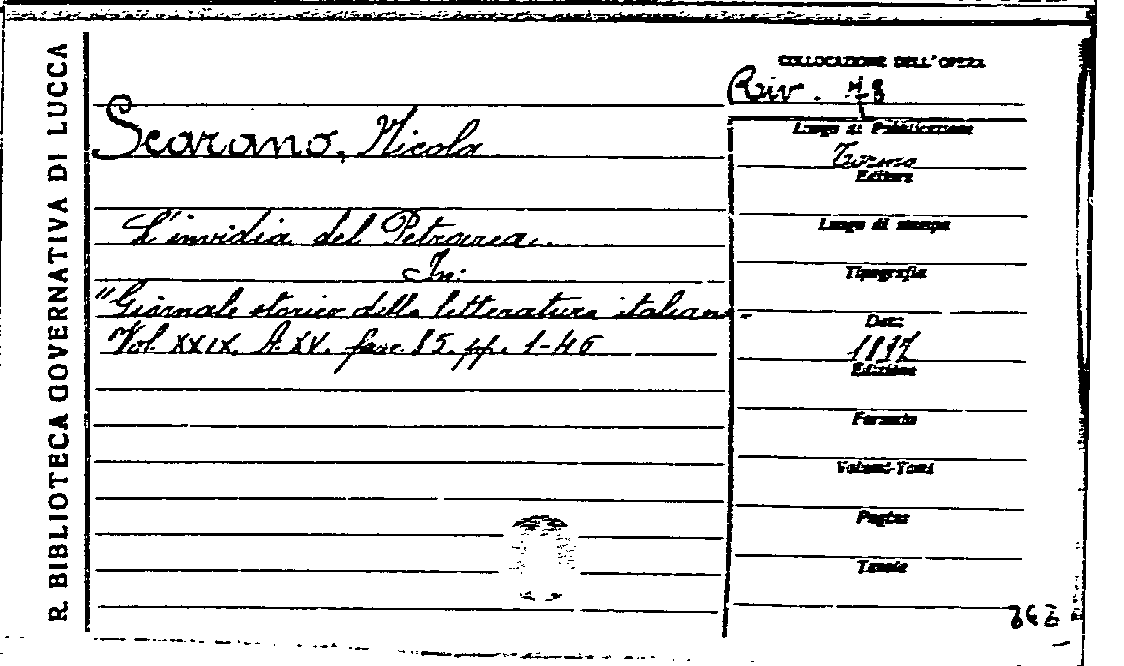 R. BIBLIOTECA GOVERNATIVA DI LUCCA
Scarano, Nicola
L'invidia del Petrarca.
In:
"Giornale storico della letteratura italiana-
Vol. XXIX. A. XV. fasc. 85. pp. 1-46
COLLOCAZIONE DELL'OPERA
Riv. 78
Luogo di Pubblicazione
Torino
Editore
Luogo di stampa
Tipografia
Data
1897
Edizione
Formato
Volumi-Tomi
Pagine
Tavole